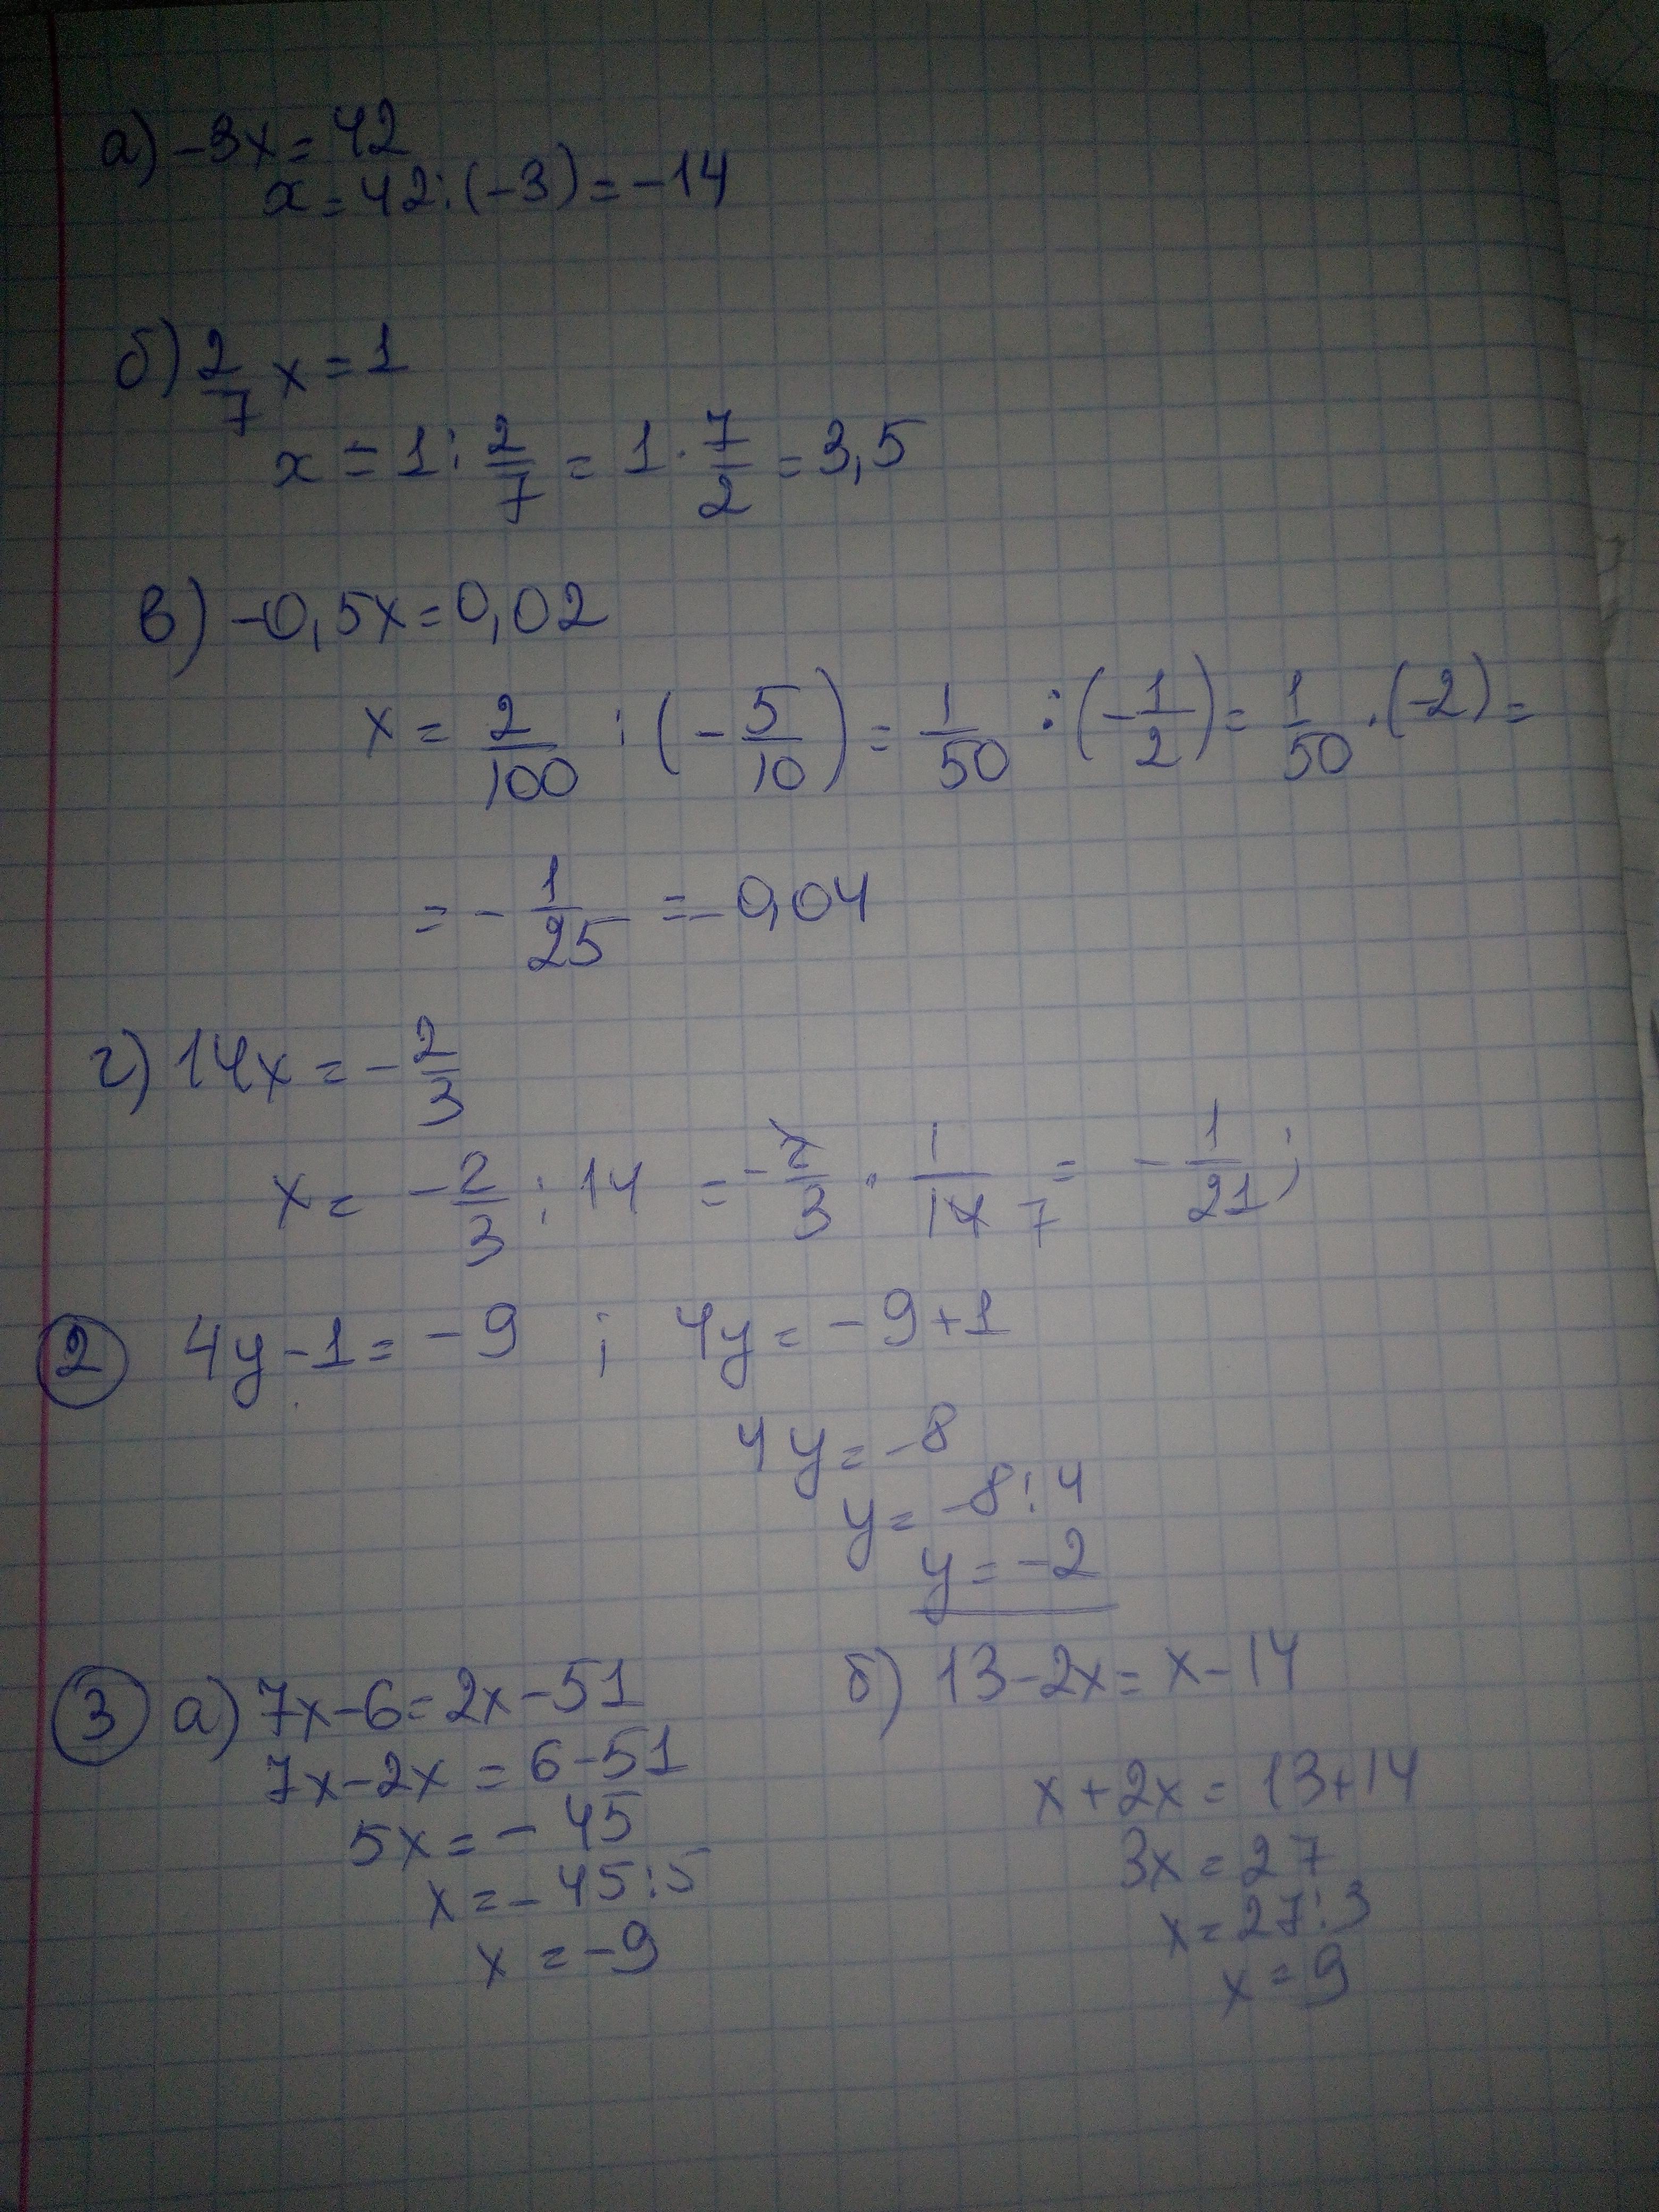 а) -3x = 42
x = 42 : (-3) = -14
б) 2/7 x = 1
x = 1 : 2/7 = 1 · 7/2 = 3,5
в) -0,5x = 0,02
x = 2/100 : (-5/10) = 1/50 : (-1/2) = 1/50 · (-2) =
= -1/25 = -0,04
г) 14x = -2/3
x = -2/3 : 14 = -2/3 · 1/14 7 = -1/21 ;
2 4y - 1 = -9 ; 4y = -9 + 1
4y = -8
y = -8 : 4
y = -2
3 а) 7x - 6 = 2x - 51
7x - 2x = 6 - 51
5x = -45
x = -45 : 5
x = -9
б) 13 - 2x = x - 14
x + 2x = 13 + 14
3x = 27
x = 27 : 3
x = 9